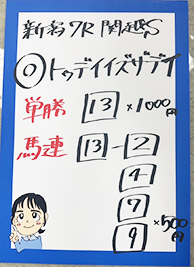 新潟7R 関越S
◎トゥデイイズザデイ
単勝 13 ×1000円
馬連 13-2
4
7
9
×500円